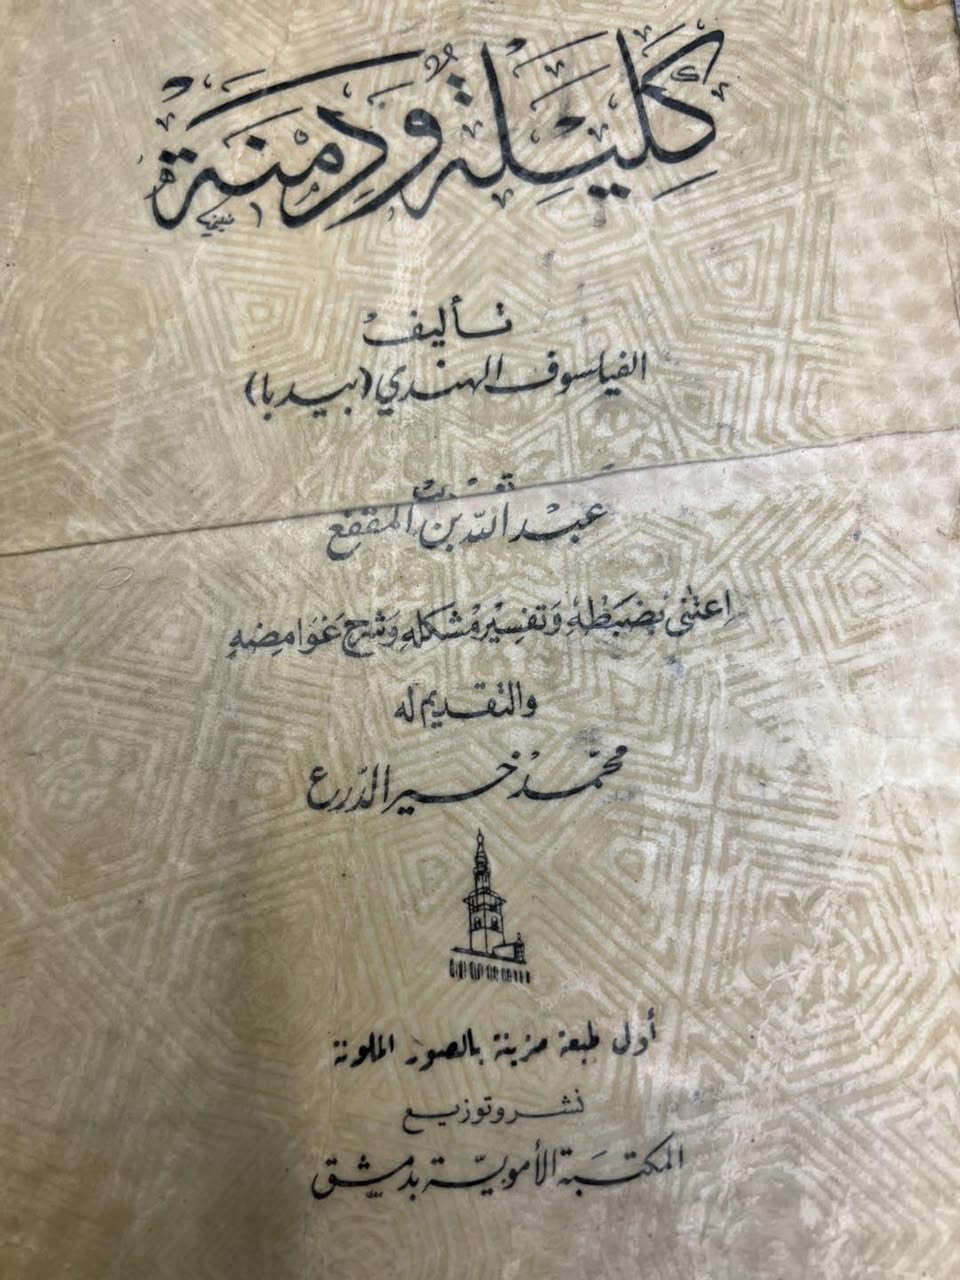 كَلِيلَة وَدِمنَة
تأليف
الفيلسوف الهندي (بيدبا)
عبد الله بن المقفع
اعتنى بضبطه وتفسير مشكله وشرح غوامضه
والتقديم له
محمد خير الدرع
أول طبعة مزينة بالصور الملونة
نشر وتوزيع
المكتبة الأموية بدمشق